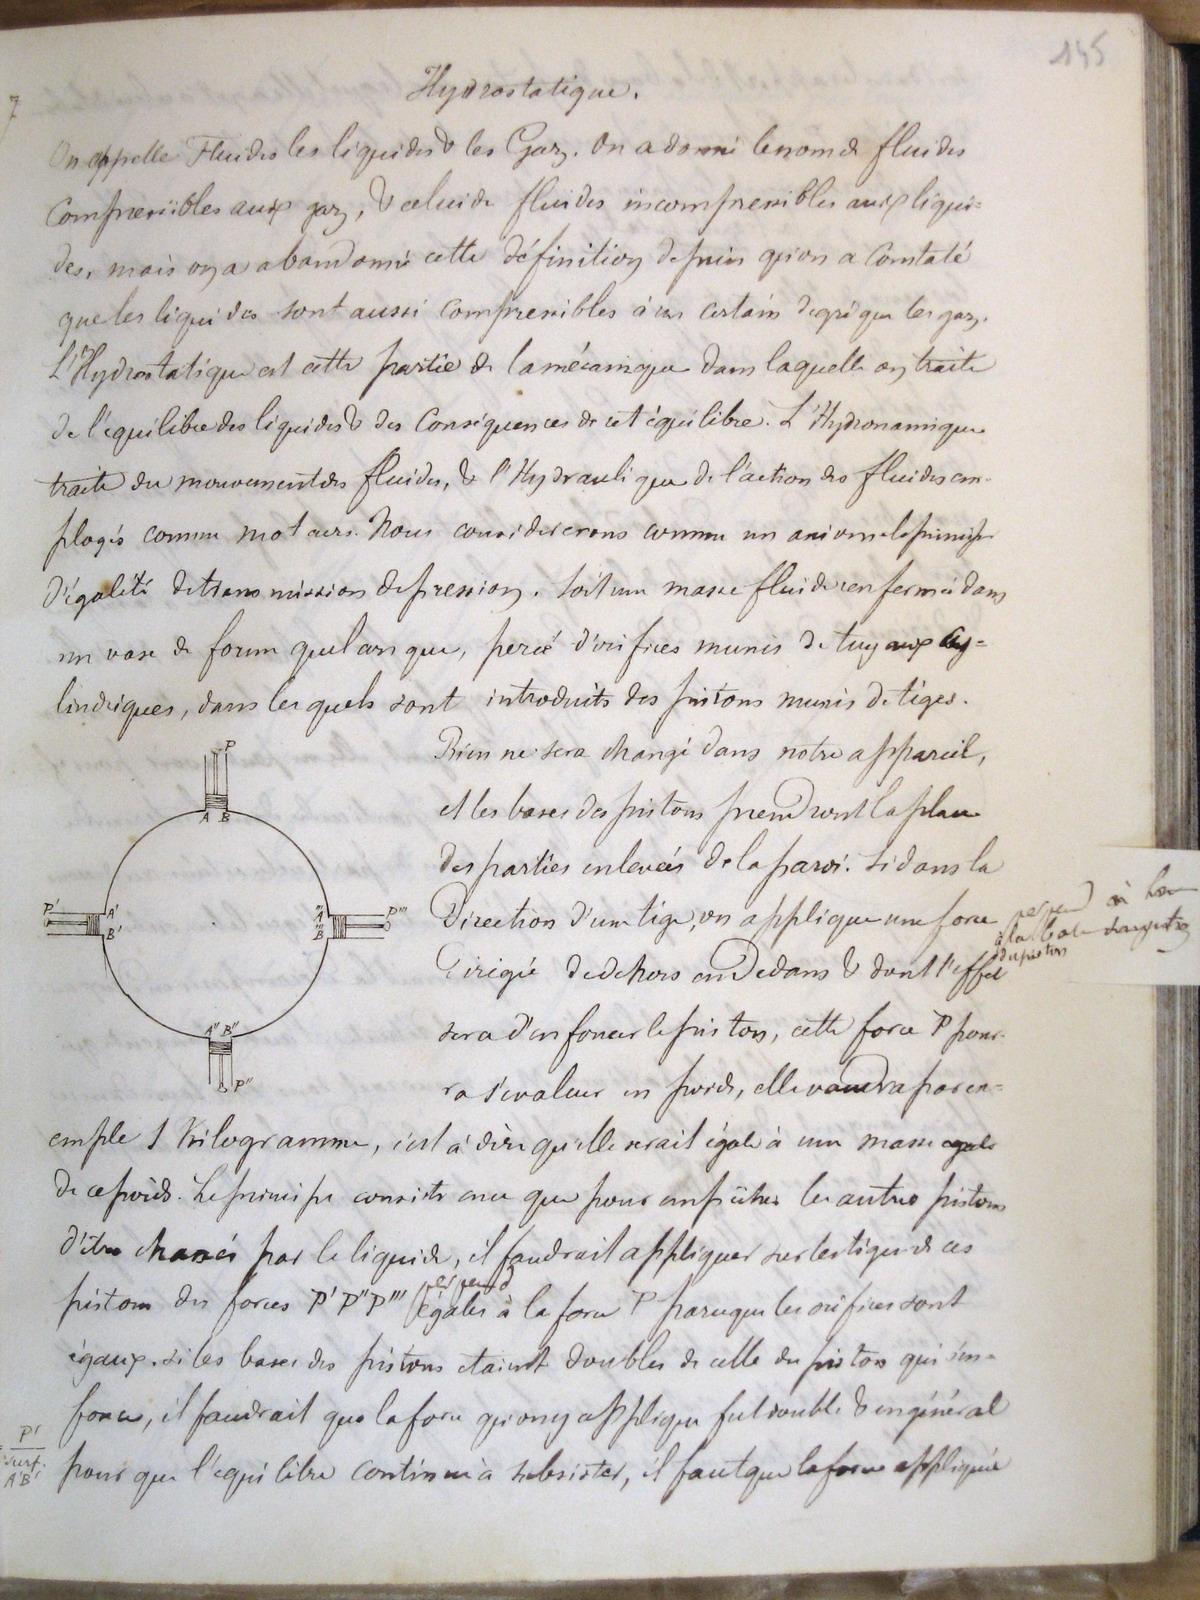 145
Hydrostatique.
On appelle Fluides les liquides & les Gaz. On a donné le nom de fluides
compressibles aux gaz, & celui de fluides incompressibles aux liqui=
des, mais on a abandonné cette définition depuis qu'on a constaté
que les liquides sont aussi compressibles à un certain degré que les gaz.
L'Hydrostatique est cette partie de la mécanique dans laquelle on traite
de l'équilibre des liquides & des conséquences de cet équilibre. L'Hydronamique
traite du mouvement des fluides, & l'Hydraulique de l'action des fluides em-
ployés comme moteurs. Nous considererons comme un axiome le principe
d'égalité de transmission de pression. Soit une masse fluide renfermée dans
un vase de forme quelconque, percé d'orifices munis de tuyaux cy=
lindriques, dans lesquels sont introduits des pistons munis de tiges.
Rien ne sera changé dans notre appareil,
et les bases des pistons prendront la place
des parties enlevées de la paroi. Si dans la
direction d'une tige, on applique une force
perpend
à la base
du piston
dirigée de dehors en dedans & dont l'effet
sera d'enfoncer le piston, cette force P pour-
ra s'evaluer en poids, elle vaudra par ex=
P
A B
P'
A'
B'
A'''
B'''
P'''
A'' B''
P''
emple 1 Kilogramme, c'est à dire qu'elle serait égale à une masse égale
de ce poids. Le principe consiste en ce que pour empêcher les autres pistons
d'être chassés par le liquide, il faudrait appliquer sur les tiges de ces
perpend
pistons des forces P' P'' P''' égales à la force P parceque les orifices sont
égaux. Si les bases des pistons etaient doubles de celle du piston qui s'en=
fonce, il faudrait que la force qu'on y applique fut double & en général
pour que l'équilibre continue à subsister, il faut que la force appliquée
P'
surf.
A'B'